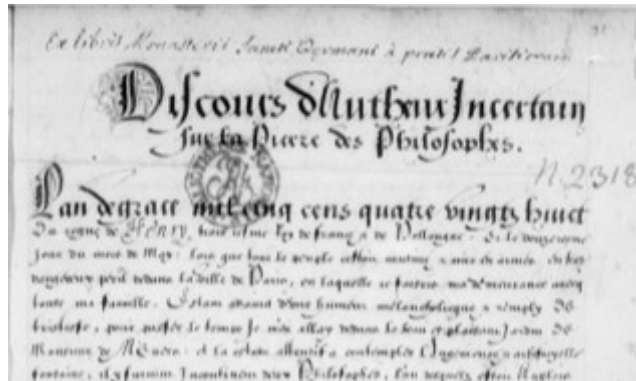 Ex libris Monasterii Sancti Germani à pratis Parisiorum
Discours d'Autheur Incertain
sur la Pierre des Philosophes.
N. 2318
L'an de grace mil cinq cens quatre vingtz huict
Du regne de Henry, troisiesme Roy de france & de Pollongne. Et le douzieme
jour du mois de May: lors que tout le peuple estoit mutiné & mis en armes, en
dangereux peril dedans la ville de Paris, en laquelle je faisois ma demeurance avec
toute ma famille. Estant attaint d'une humeur mélancholique & remply de
tristesse, pour passer le temps Je m'en allay dedans le beau & plaisant Jardin de
Monsieur de : et la estant attentif a contempler l'Ingenieuse & artificyelle
fontaine, il y survint Incontinent deux Philosophes, l'un desquels estoit Anglois